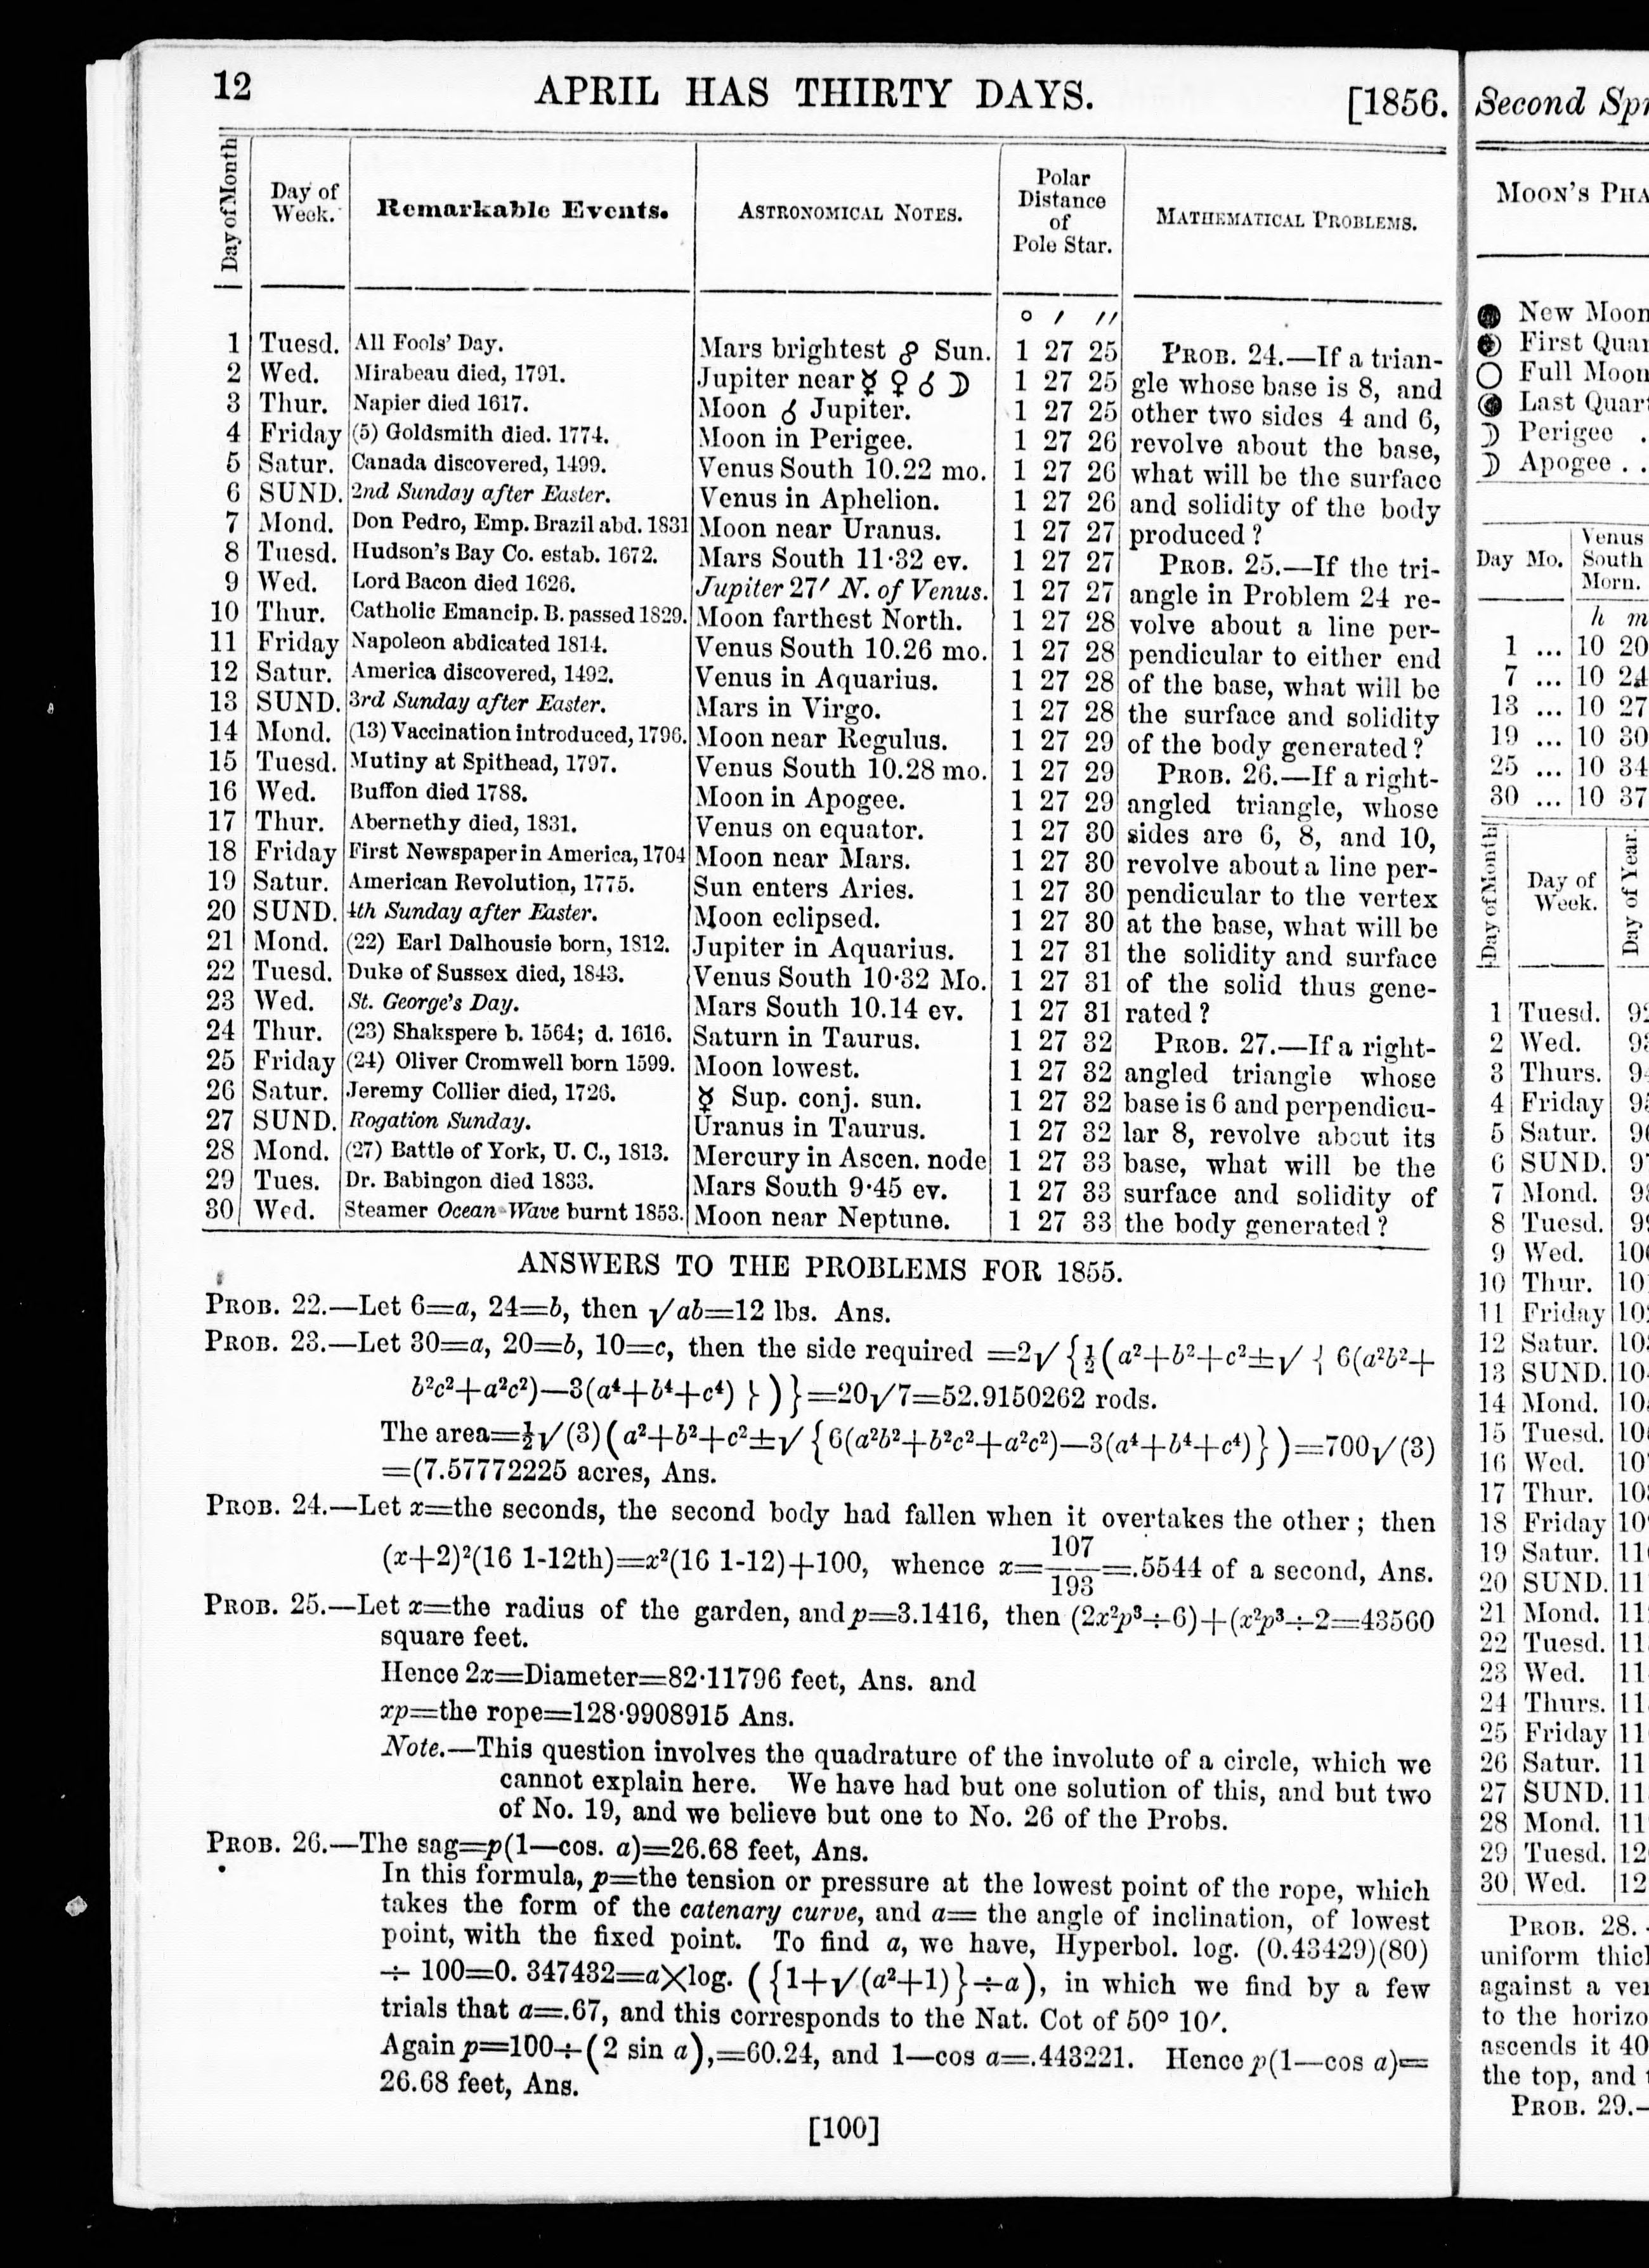 12 APRIL HAS THIRTY DAYS. [1856.
Day of Month
Day of Week.
Remarkable Events.
ASTRONOMICAL NOTES.
Polar Distance of Pole Star.
MATHEMATICAL PROBLEMS.
° ′ ′′
1 Tuesd. All Fools' Day. Mars brightest ☍ Sun. 1 27 25
2 Wed. Mirabeau died, 1791. Jupiter near ☿ ♀ ☌ ☽ 1 27 25
3 Thur. Napier died 1617. Moon ☌ Jupiter. 1 27 25
4 Friday (5) Goldsmith died. 1774. Moon in Perigee. 1 27 26
5 Satur. Canada discovered, 1499. Venus South 10.22 mo. 1 27 26
6 SUND. 2nd Sunday after Easter. Venus in Aphelion. 1 27 26
7 Mond. Don Pedro, Emp. Brazil abd. 1831 Moon near Uranus. 1 27 27
8 Tuesd. Hudson's Bay Co. estab. 1672. Mars South 11·32 ev. 1 27 27
9 Wed. Lord Bacon died 1626. Jupiter 27′ N. of Venus. 1 27 27
10 Thur. Catholic Emancip. B. passed 1829. Moon farthest North. 1 27 28
11 Friday Napoleon abdicated 1814. Venus South 10.26 mo. 1 27 28
12 Satur. America discovered, 1492. Venus in Aquarius. 1 27 28
13 SUND. 3rd Sunday after Easter. Mars in Virgo. 1 27 28
14 Mond. (13) Vaccination introduced, 1796. Moon near Regulus. 1 27 29
15 Tuesd. Mutiny at Spithead, 1797. Venus South 10.28 mo. 1 27 29
16 Wed. Buffon died 1788. Moon in Apogee. 1 27 29
17 Thur. Abernethy died, 1831. Venus on equator. 1 27 30
18 Friday First Newspaper in America, 1704 Moon near Mars. 1 27 30
19 Satur. American Revolution, 1775. Sun enters Aries. 1 27 30
20 SUND. 4th Sunday after Easter. Moon eclipsed. 1 27 30
21 Mond. (22) Earl Dalhousie born, 1812. Jupiter in Aquarius. 1 27 31
22 Tuesd. Duke of Sussex died, 1843. Venus South 10·32 Mo. 1 27 31
23 Wed. St. George's Day. Mars South 10.14 ev. 1 27 31
24 Thur. (23) Shakspere b. 1564; d. 1616. Saturn in Taurus. 1 27 32
25 Friday (24) Oliver Cromwell born 1599. Moon lowest. 1 27 32
26 Satur. Jeremy Collier died, 1726. ☿ Sup. conj. sun. 1 27 32
27 SUND. Rogation Sunday. Uranus in Taurus. 1 27 32
28 Mond. (27) Battle of York, U. C., 1813. Mercury in Ascen. node 1 27 33
29 Tues. Dr. Babingon died 1833. Mars South 9·45 ev. 1 27 33
30 Wed. Steamer Ocean Wave burnt 1853. Moon near Neptune. 1 27 33
PROB. 24.—If a trian-
gle whose base is 8, and
other two sides 4 and 6,
revolve about the base,
what will be the surface
and solidity of the body
produced?
PROB. 25.—If the tri-
angle in Problem 24 re-
volve about a line per-
pendicular to either end
of the base, what will be
the surface and solidity
of the body generated?
PROB. 26.—If a right-
angled triangle, whose
sides are 6, 8, and 10,
revolve about a line per-
pendicular to the vertex
at the base, what will be
the solidity and surface
of the solid thus gene-
rated?
PROB. 27.—If a right-
angled triangle whose
base is 6 and perpendicu-
lar 8, revolve about its
base, what will be the
surface and solidity of
the body generated?
ANSWERS TO THE PROBLEMS FOR 1855.
PROB. 22.—Let 6=a, 24=b, then √ab=12 lbs. Ans.
PROB. 23.—Let 30=a, 20=b, 10=c, then the side required =2√{½(a²+b²+c²±√{6(a²b²+
b²c²+a²c²)—3(a⁴+b⁴+c⁴)})}=20√7=52.9150262 rods.
The area=½√(3)(a²+b²+c²±√{6(a²b²+b²c²+a²c²)—3(a⁴+b⁴+c⁴)})=700√(3)
=(7.57772225 acres, Ans.
PROB. 24.—Let x=the seconds, the second body had fallen when it overtakes the other; then
(x+2)²(16 1-12th)=x²(16 1-12)+100, whence x=107/193=.5544 of a second, Ans.
PROB. 25.—Let x=the radius of the garden, and p=3.1416, then (2x²p³÷6)+(x²p³÷2=43560
square feet.
Hence 2x=Diameter=82·11796 feet, Ans. and
xp=the rope=128·9908915 Ans.
Note.—This question involves the quadrature of the involute of a circle, which we
cannot explain here. We have had but one solution of this, and but two
of No. 19, and we believe but one to No. 26 of the Probs.
PROB. 26.—The sag=p(1—cos. a)=26.68 feet, Ans.
In this formula, p=the tension or pressure at the lowest point of the rope, which
takes the form of the catenary curve, and a= the angle of inclination, of lowest
point, with the fixed point. To find a, we have, Hyperbol. log. (0.43429)(80)
÷ 100=0. 347432=a×log. ({1+√(a²+1)}÷a), in which we find by a few
trials that a=.67, and this corresponds to the Nat. Cot of 50° 10′.
Again p=100÷(2 sin a),=60.24, and 1—cos a=.443221. Hence p(1—cos a)=
26.68 feet, Ans.
[100]
Second Spr
MOON'S PHA
New Moon
First Quar
Full Moon
Last Quar
☽ Perigee .
☽ Apogee . .
Day Mo. Venus South Morn.
h m
1 ... 10 20
7 ... 10 24
13 ... 10 27
19 ... 10 30
25 ... 10 34
30 ... 10 37
Day of Month
Day of Week.
Day of Year.
1 Tuesd.
2 Wed.
3 Thurs.
4 Friday
5 Satur.
6 SUND.
7 Mond.
8 Tuesd.
9 Wed.
10 Thur.
11 Friday
12 Satur.
13 SUND.
14 Mond.
15 Tuesd.
16 Wed.
17 Thur.
18 Friday
19 Satur.
20 SUND.
21 Mond.
22 Tuesd.
23 Wed.
24 Thurs.
25 Friday
26 Satur.
27 SUND.
28 Mond.
29 Tuesd.
30 Wed.
PROB. 28.
uniform thicl
against a ver
to the horizo
ascends it 40
the top, and
PROB. 29.—